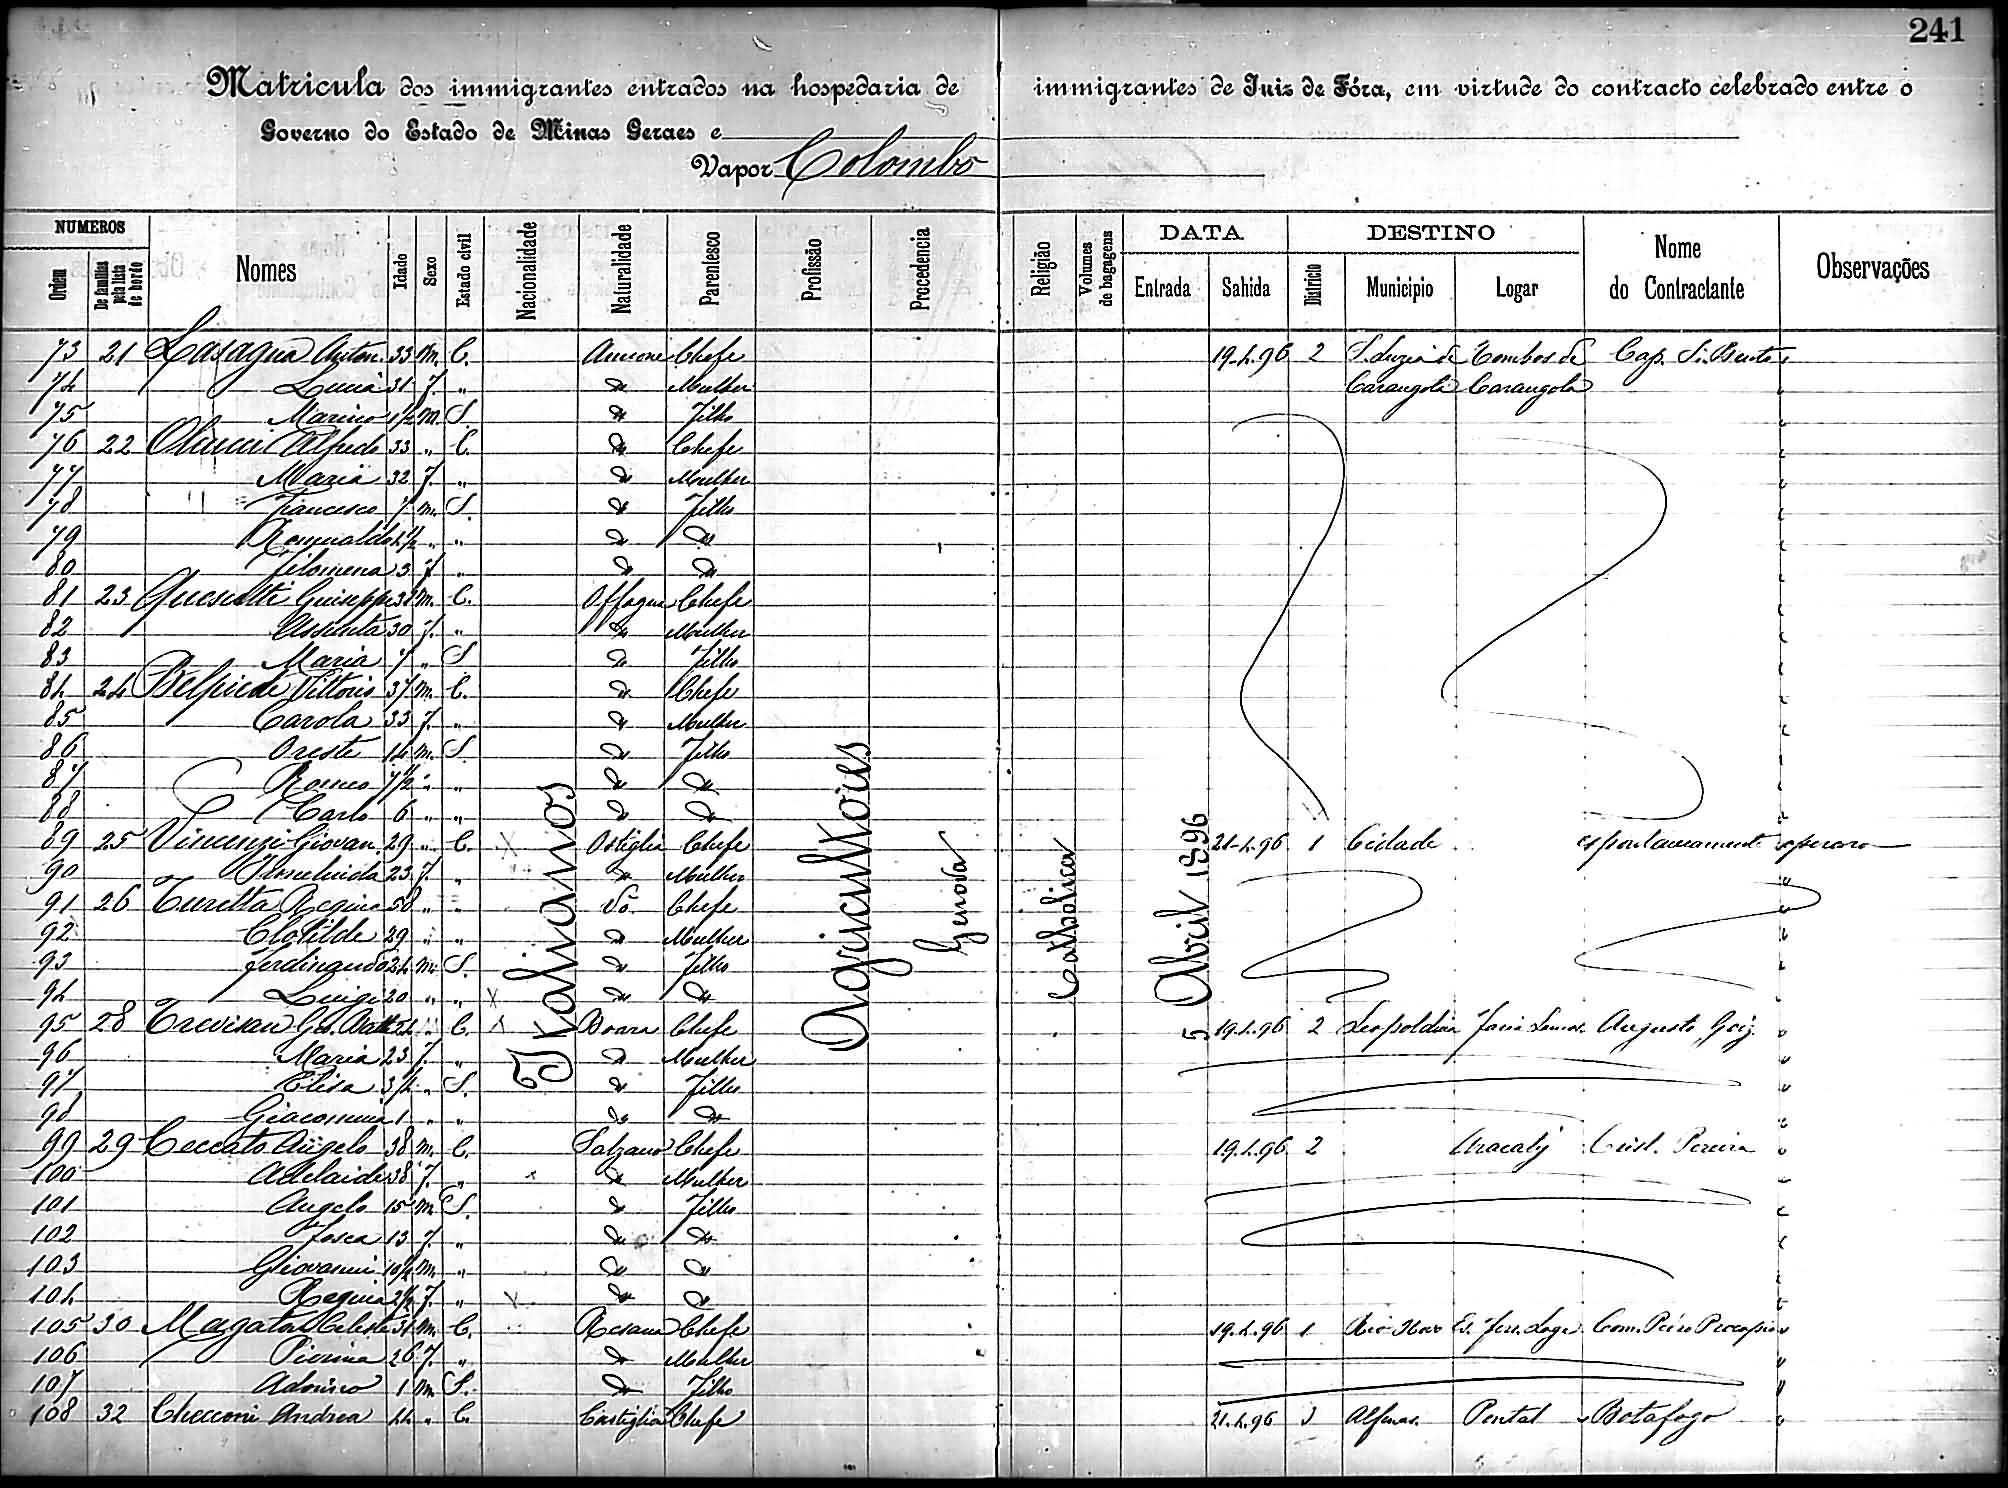 241
Matricula dos immigrantes entrados na hospedaria de immigrantes de Juiz de Fóra, em virtude do contracto celebrado entre o
Governo do Estado de Minas Geraes e
Vapor Colombo
NUMEROS
Ordem De familias pela lista de bordo Nomes Idade Sexo Estado civil Nacionalidade Naturalidade Parentesco Profissão Procedencia Religião Volumes de bagagens DATA Entrada Sahida DESTINO Districto Municipio Logar Nome do Contractante Observações
Italianos Agricultores Genova Catholica 5 Abril 1896
73 21 Lasagna Anton. 33 m. C. Chefe 19-4-96 2 S. Luzia de Tombos de Cap.
74 Lucia 31 f. " Do Mulher Carangola Carangola "
75 Marino 1/2 m S. Do Filho "
76 22 Alfredo 33 " C. Do Chefe "
77 Maria 32 f. " Do Mulher "
78 Francesco 7 m. S. Do Filho "
79 Romualdo " " Do Do "
80 Filomena 3 f " Do Do "
81 23 Guiseppe m. C. Offagna Chefe "
82 Assunta 30 f. " Do Mulher "
83 Maria 7 " S Do Filho "
84 24 Vittorio 37 m. C. Do Chefe "
85 Carola 33 f. " Do Mulher "
86 Oreste 14 m. S Do Filho "
87 Romeo 7 1/2 " " Do Do "
88 Carlo 6 " " Do Do "
89 25 Vincenzi Giovan 29 " C. Ostiglia Chefe 21-4-96 1 Cidade espontaneamente operario
90 23 f. " Do Mulher "
91 26 Turetta Regina 58 " " Do Chefe "
92 Clotilde 29 " " Do Mulher "
93 Ferdinando 24 m. S. Do Filho "
94 Luigi 20 " " Do Do "
95 28 Trevisan Gio. Batt C. Boara Chefe 19.4.96 2 Leopoldina Augusto "
96 Maria 23 f. " Do Mulher "
97 Elisa 3 1/2 " S. Do Filho "
98 Giacomina 1 " " Do Do "
99 29 Ceccato Angelo 38 m. C. Salzano Chefe 19.4.96 2 Aracaty Crist. Pereira "
100 Adelaide 38 f. " Do Mulher "
101 Angelo 15 m S. Do Filho "
102 13 f. " Do Do "
103 Giovanni 10 1/2 m. " Do Do "
104 Regina 2 1/2 f. " Do Do "
105 30 Celeste 31 m. C. Chefe 19.4.96 1 Rio Novo Com. Pedro Procopio "
106 Pierina 26 f. " Do Mulher "
107 1 m S. Do Filho "
108 32 Checconi Andrea 44 " C. Castiglia Chefe 21.4.96 3 Alfenas Pontal Botafogo "